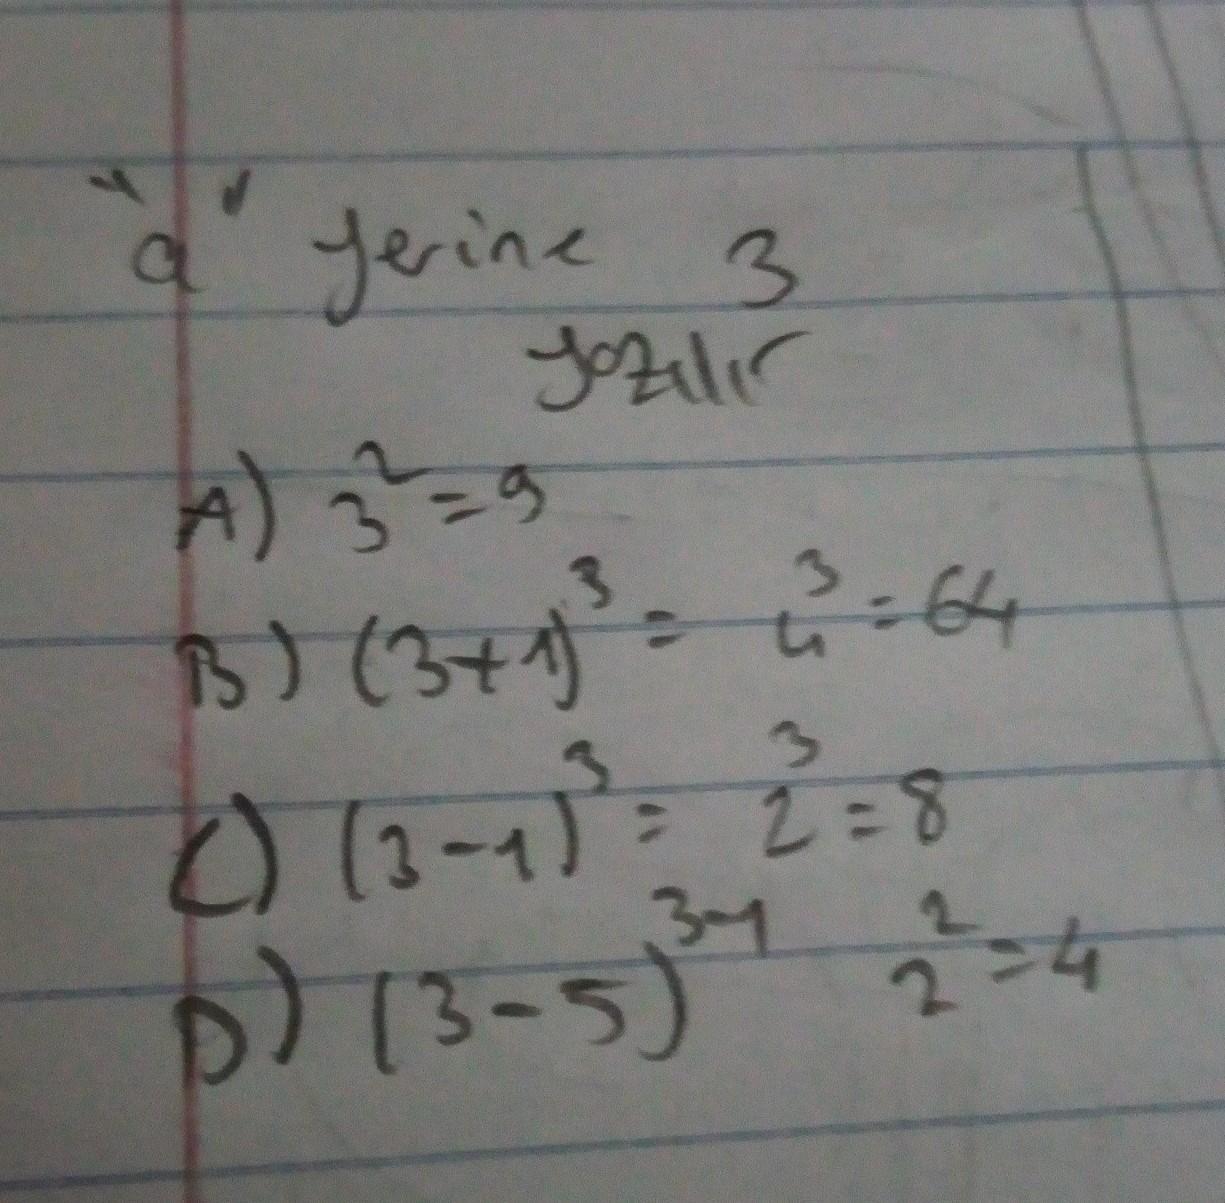 "a" yerine 3
yazılır
A) 3² = 9
B) (3+1)³ = 4³ = 64
C) (3-1)³ = 2³ = 8
D) (3-5)³⁻¹ 2² = 4